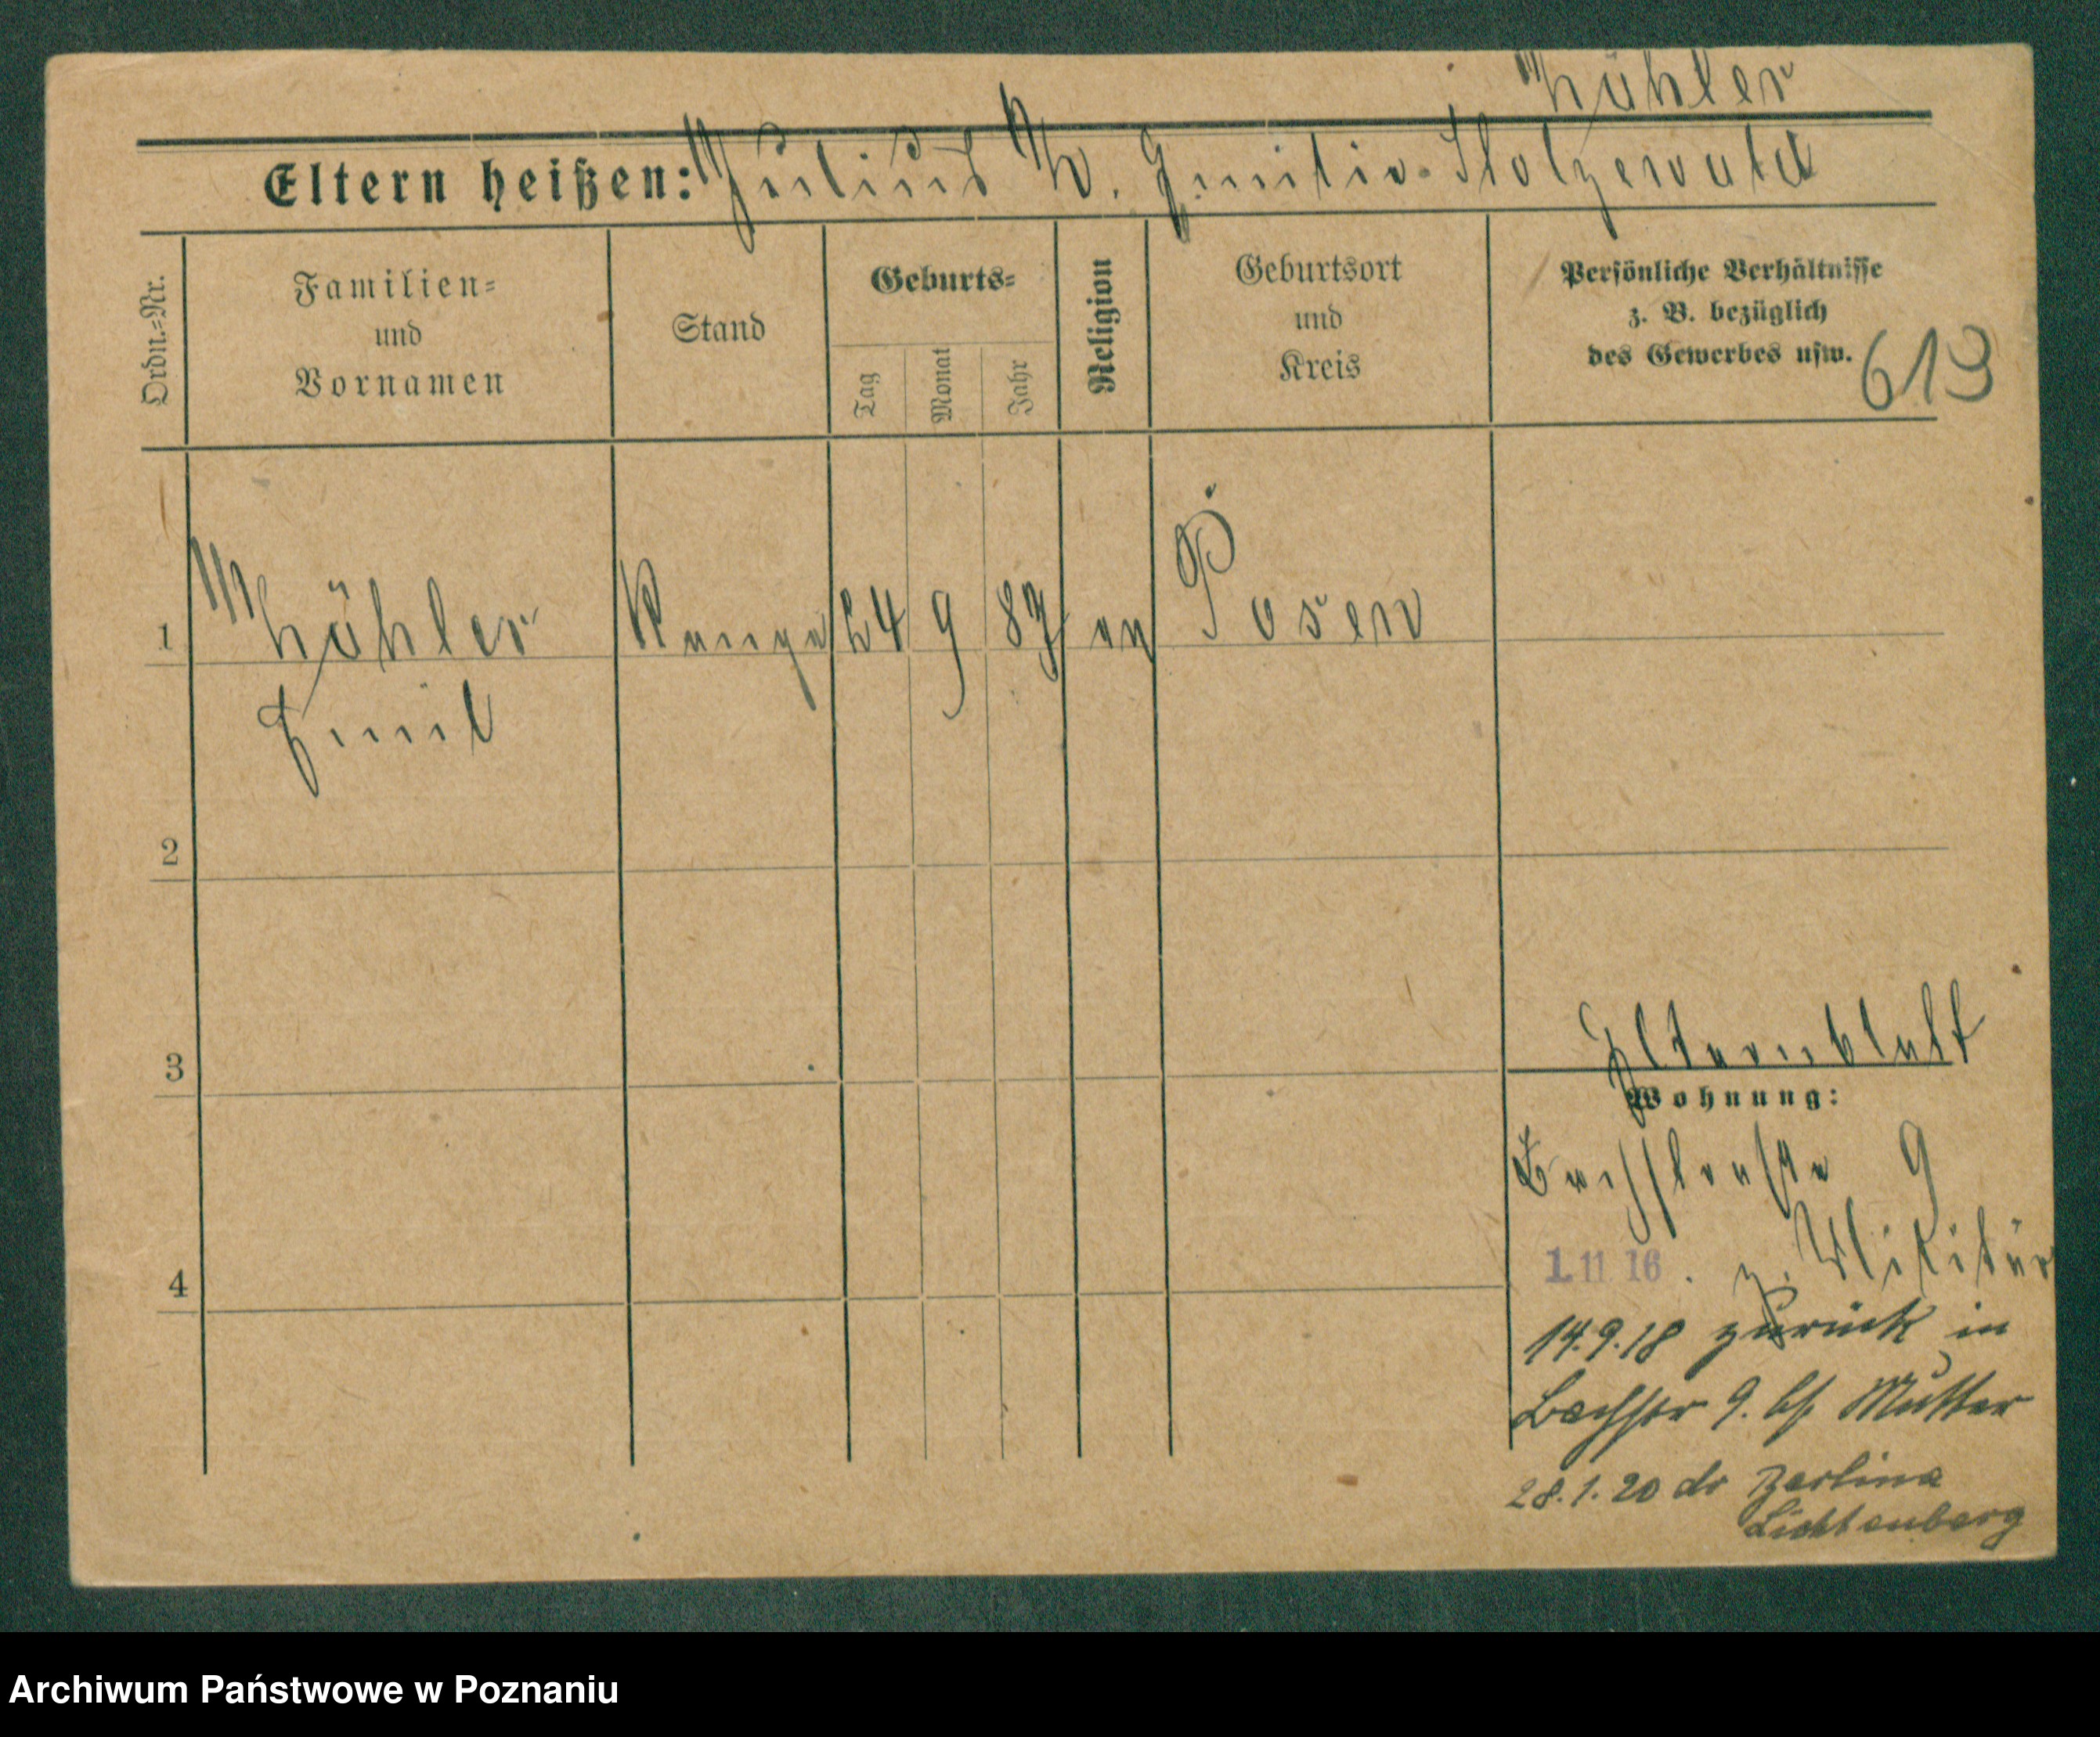 Köhler
Eltern heißen: Julius K. Emilie Stolzewald
Ordn.=Nr.
Familien=
und
Vornamen
Stand
Geburts=
Tag
Monat
Jahr
Religion
Geburtsort
und
Kreis
Persönliche Verhältnisse
z. B. bezüglich
des Gewerbes usw.
613
1 Köhler 24 9 87 ev Posen
Emil
2
3
4
Elternblatt
Wohnung:
9
1.11 16. z. Militär
14.9.18 zurück in
Bachstr 9. bei Mutter
28.1.20 Berlin
Lichtenberg
Archiwum Państwowe w Poznaniu